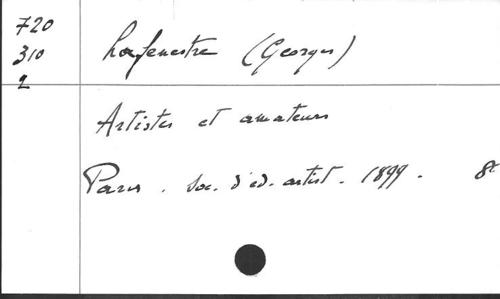 720
310
2
Lafenestre (Georges)
Artistes et amateurs
Paris. Soc. d'éd. artist. 1899. 8º